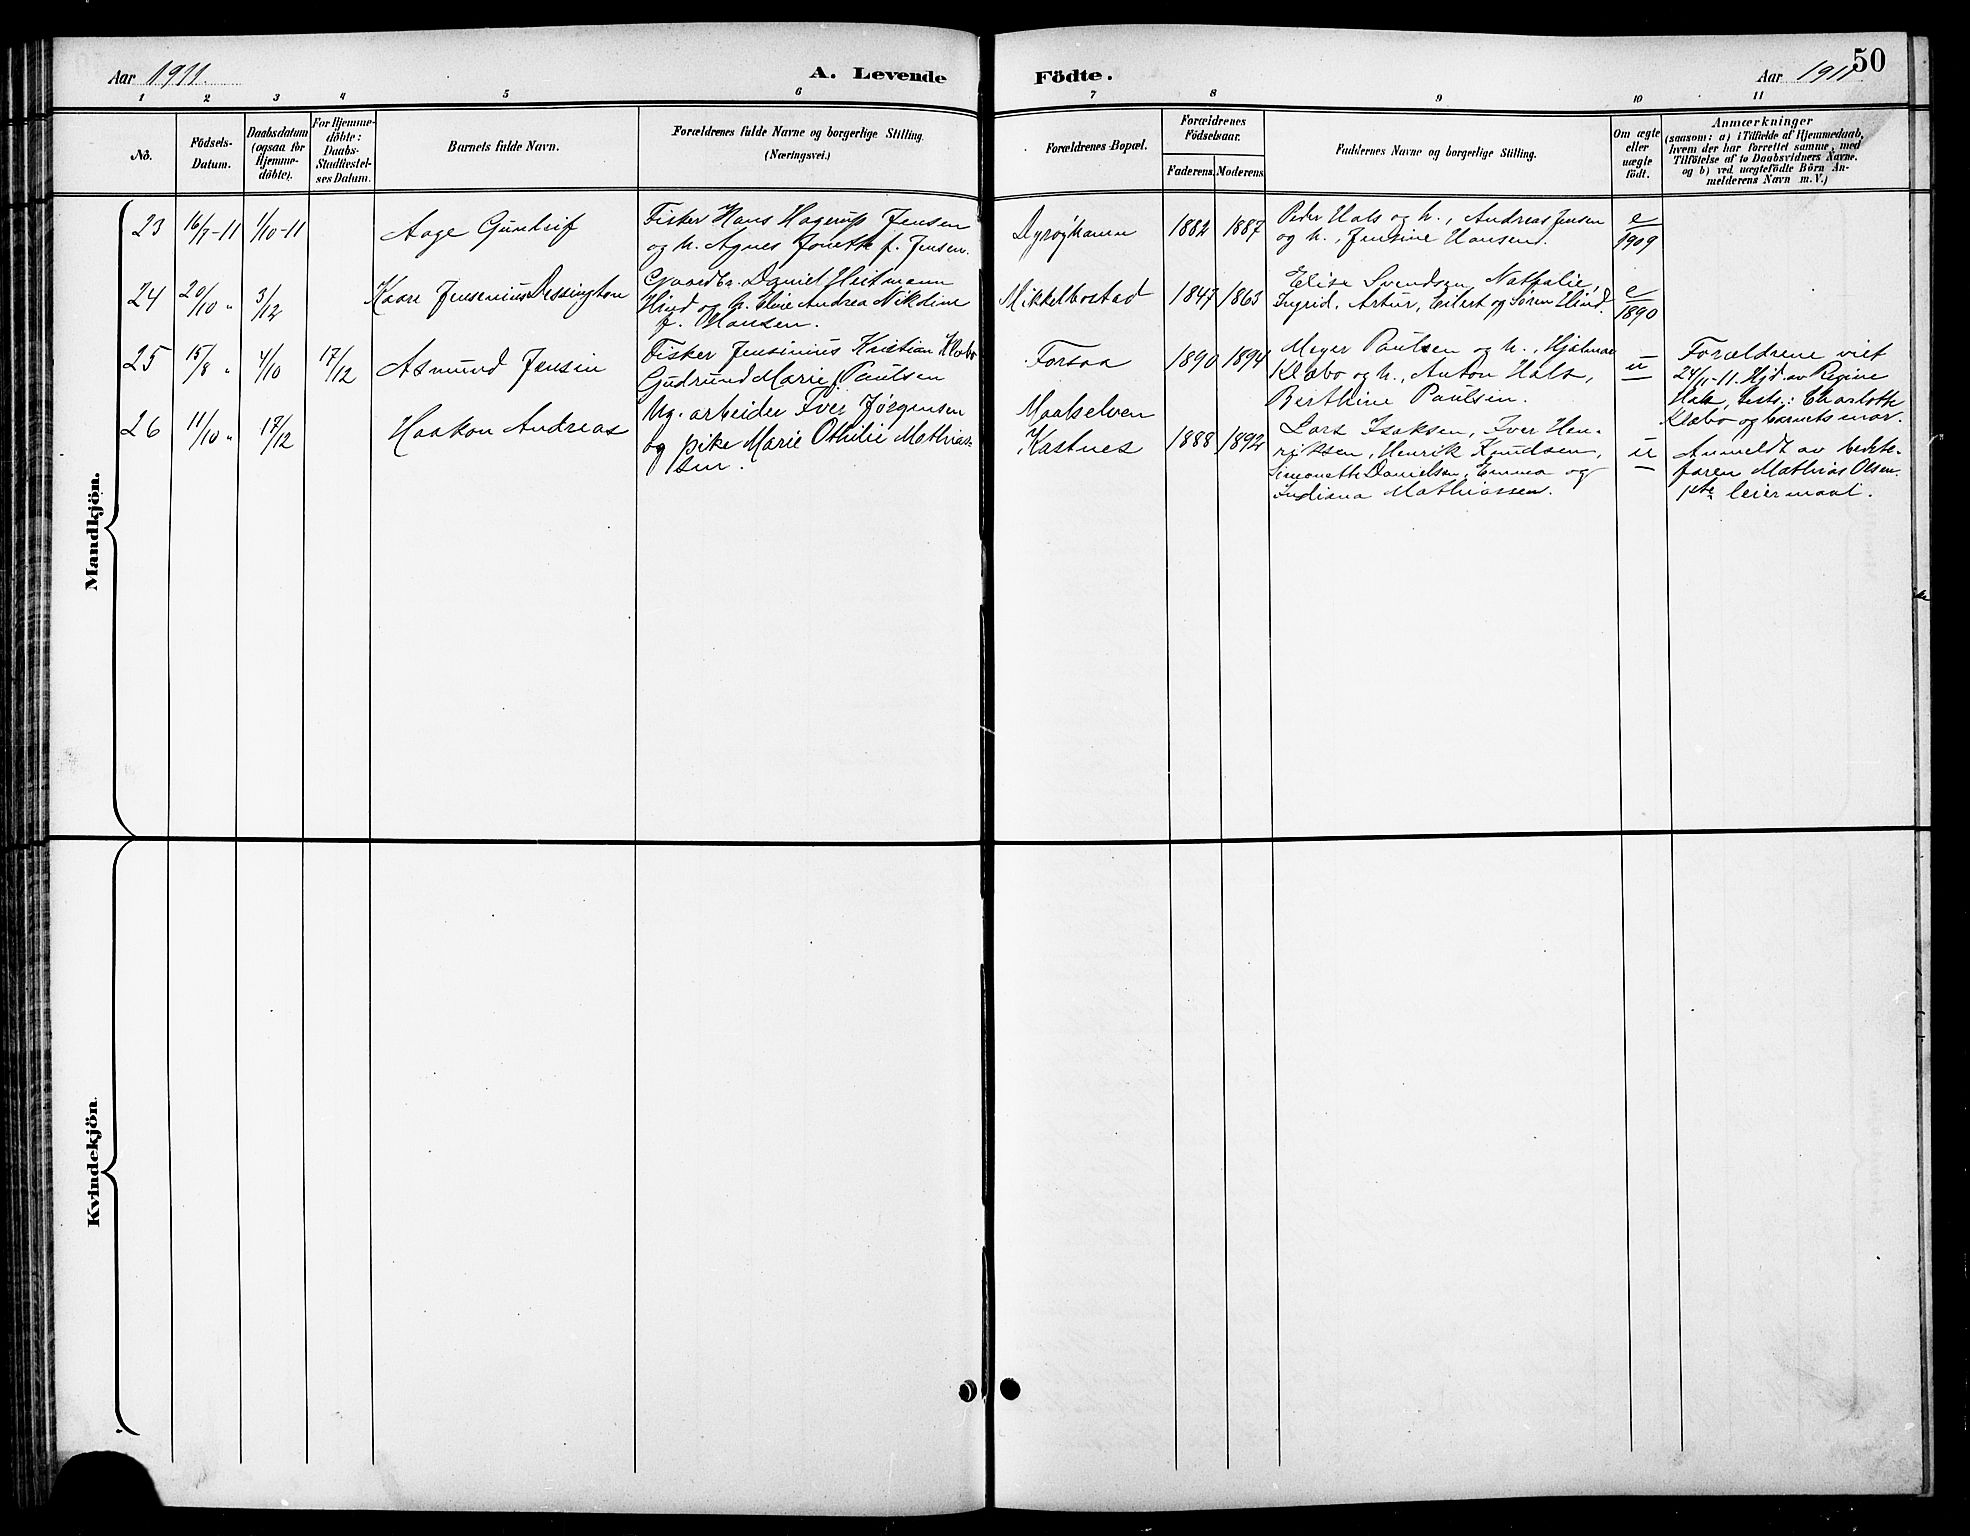 Aar 1911.
A. Levende
Födte.
Aar 1911
50
1 2 3 4 5 6 7 8 9 10 11
No.
Födsels-
Datum.
Daabsdatum
(ogsaa for
Hjemme-
döbte).
For Hjemme-
döbte:
Daabs-
Stadfæstel-
ses Datum.
Barnets fulde Navn.
Forældrenes fulde Navne og borgerlige Stilling.
(Næringsvei.)
Forældrenes Bopæl.
Forældrenes
Födselsaar.
Faderens. Moderens.
Faddernes Navne og borgerlige Stilling.
Om ægte
eller
uægte
födt.
Anmærkninger
(saasom: a) i Tilfælde af Hjemmedaab,
hvem der har forrettet samme, med
Tilföielse af to Daabsvidners Navne.
og b) ved uægtefödte Börn An-
melderens Navn m. V.)
Mandkjön.
23 16/7-11 1/10-11 Aage Gundrif
Fisker Hans Hagerup Jensen
og h. Agnes Jonette f. Jensen.
Dyrøyhamn 1882 1887
Peder Hals og h., Andreas Jensen
og h., Jensine Hansend.
e
1909
24 20/10 " 3/12 Kaare Jensenius Dessington
Gaardbr. Daniel Heitmann
Hind og h. Eline Andrea Nikoline
f. Hansen.
Mikkelbostad 1847 1865
Elise Svendsen, Nathalie,
Ingrid, Artur, Eilert og Søren Hind.
e
1890
25 15/8 " 4/10 17/12 Asmund Jensin
Fisker Jensinius Kristian Klæbo
Gudrund Marie f. Paulsen
Forsaa 1890 1894
Meyer Paulsen og h., Hjalmar
Klæbo og h., Anton Hals,
Berthine Paulsen.
u
Forældrene viet
24/11-11. Hjd. av Regine
Hals, tests.: Charlotte
Klæbo og barnets mor.
26 11/10 " 17/12 Haakon Andreas
Ug. arbeider Iver Jørgensen
og pike Marie Othilie Mathias-
sen.
Maalselven
Kastnes 1888 1892
Lars Isaksen, Iver Hen-
riksen, Henrik Knudsen,
Simonette Danielsen, Emma og
Indiana Mathiassen.
u
Anmeldt av bedste-
faren Mathias Olsen.
1ste leiermaal.
Kvindekjön.